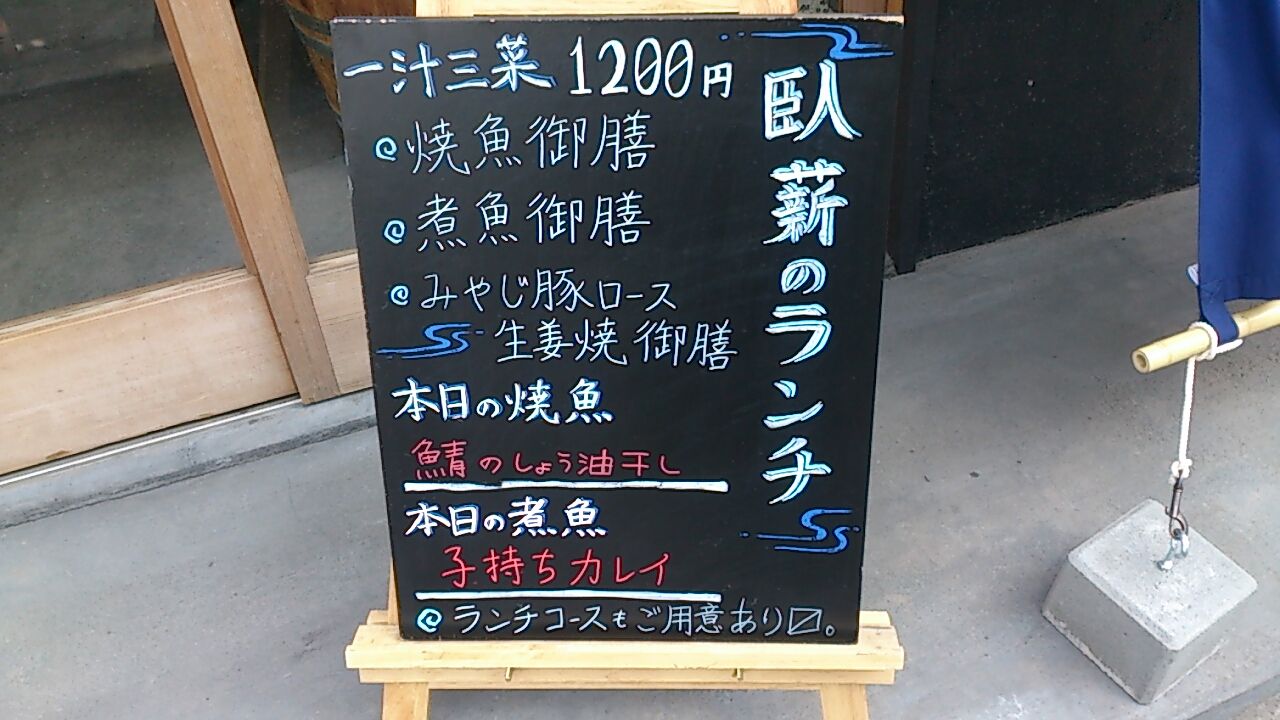 臥薪のランチ
一汁三菜 1200円
焼魚御膳
煮魚御膳
みやじ豚ロース
生姜焼御膳
本日の焼魚
鯖のしょう油干し
本日の煮魚
子持ちカレイ
ランチコースもご用意あり〼。